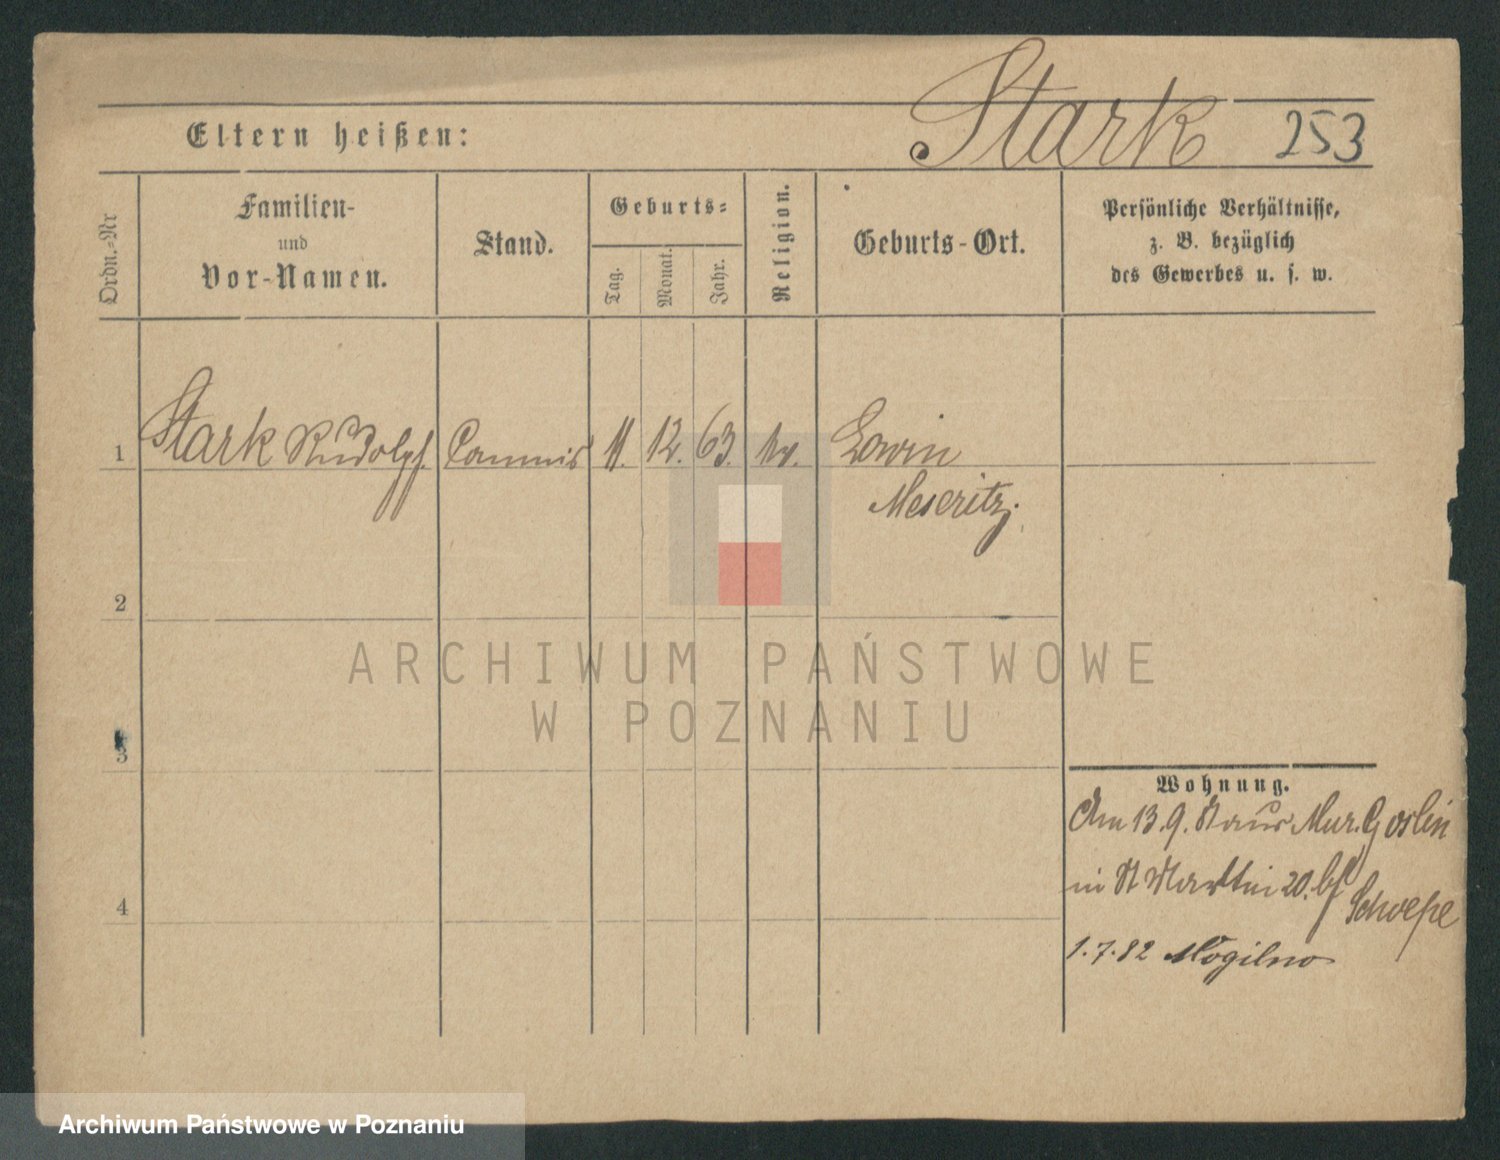 Stark 253
Eltern heißen:
Ordn.-Nr
Familien-
und
Vor-Namen.
Stand.
Geburts-
Tag.
Monat.
Jahr.
Religion.
Geburts-Ort.
Persönliche Verhältnisse,
z. B. bezüglich
des Gewerbes u. s. w.
1 Stark Rudolph. Commis 11. 12. 63. Lewin
Meseritz.
2
3
4
Wohnung.
Am 13.9. aus Mur. Goslin
in St Martin 20. bf
Schoepe
1.7.82 Mogilno
ARCHIWUM PAŃSTWOWE
W POZNANIU
Archiwum Państwowe w Poznaniu